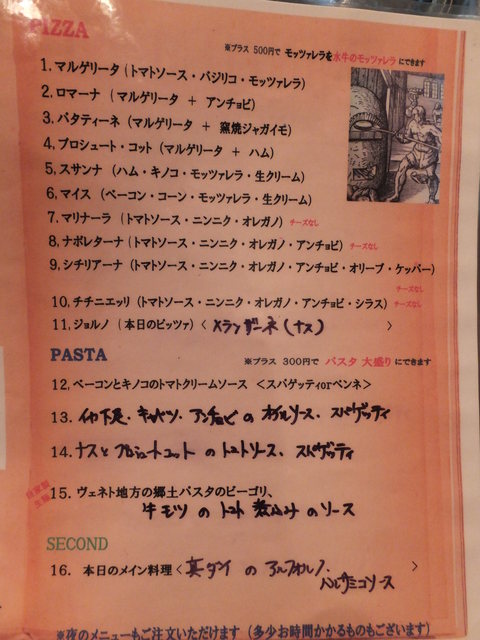 PIZZA
※プラス 500円で モッツァレラを水牛のモッツァレラ にできます
1. マルゲリータ (トマトソース・バジリコ・モッツァレラ)
2. ロマーナ ( マルゲリータ + アンチョビ)
3. パタティーネ (マルゲリータ + 窯焼ジャガイモ)
4. プロシュート・コット (マルゲリータ + ハム)
5. スサンナ (ハム・キノコ・モッツァレラ・生クリーム)
6. マイス (ベーコン・コーン・モッツァレラ・生クリーム)
7. マリナーラ (トマトソース・ニンニク・オレガノ) チーズなし
8. ナポレターナ (トマトソース・ニンニク・オレガノ・アンチョビ) チーズなし
9. シチリアーナ (トマトソース・ニンニク・オレガノ・アンチョビ・オリーブ・ケッパー)
チーズなし
10. チチニエッリ (トマトソース・ニンニク・オレガノ・アンチョビ・シラス) チーズなし
11. ジョルノ (本日のピッツァ) < メランザーネ (ナス) >
PASTA
※プラス 300円で パスタ 大盛り にできます
12. ベーコンとキノコのトマトクリームソース <スパゲッティorペンネ>
13. 竹下足、キャベツ、アンチョビのオイルソース、スパゲッティ
14. ナスとプロシュートコットのトマトソース、スパゲッティ
自家製
生麺
15. ヴェネト地方の郷土パスタのビーゴリ、
牛モツのトマト煮込みのソース
SECOND
16. 本日のメイン料理 < 真ダイのアルフォルノ、
バルサミコソース >
※夜のメニューもご注文いただけます (多少お時間かかるものもございます)